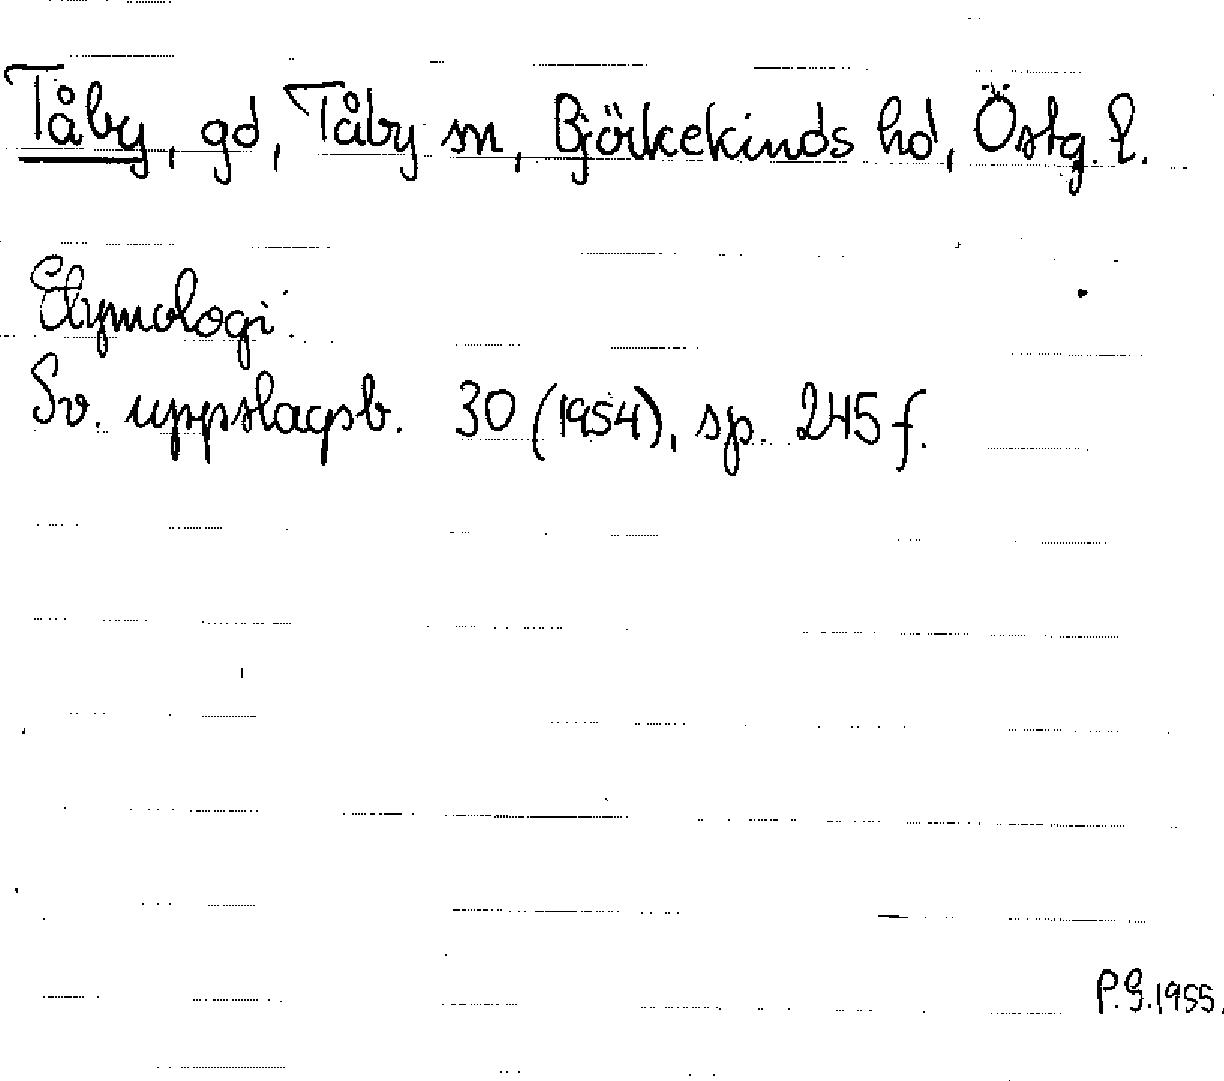 Tåby, gd, Tåby sn, Björkekinds hd, Östg. l.
Etymologi:
Sv. uppslagsb. 30 (1954), sp. 245 f.
P.G.1955.